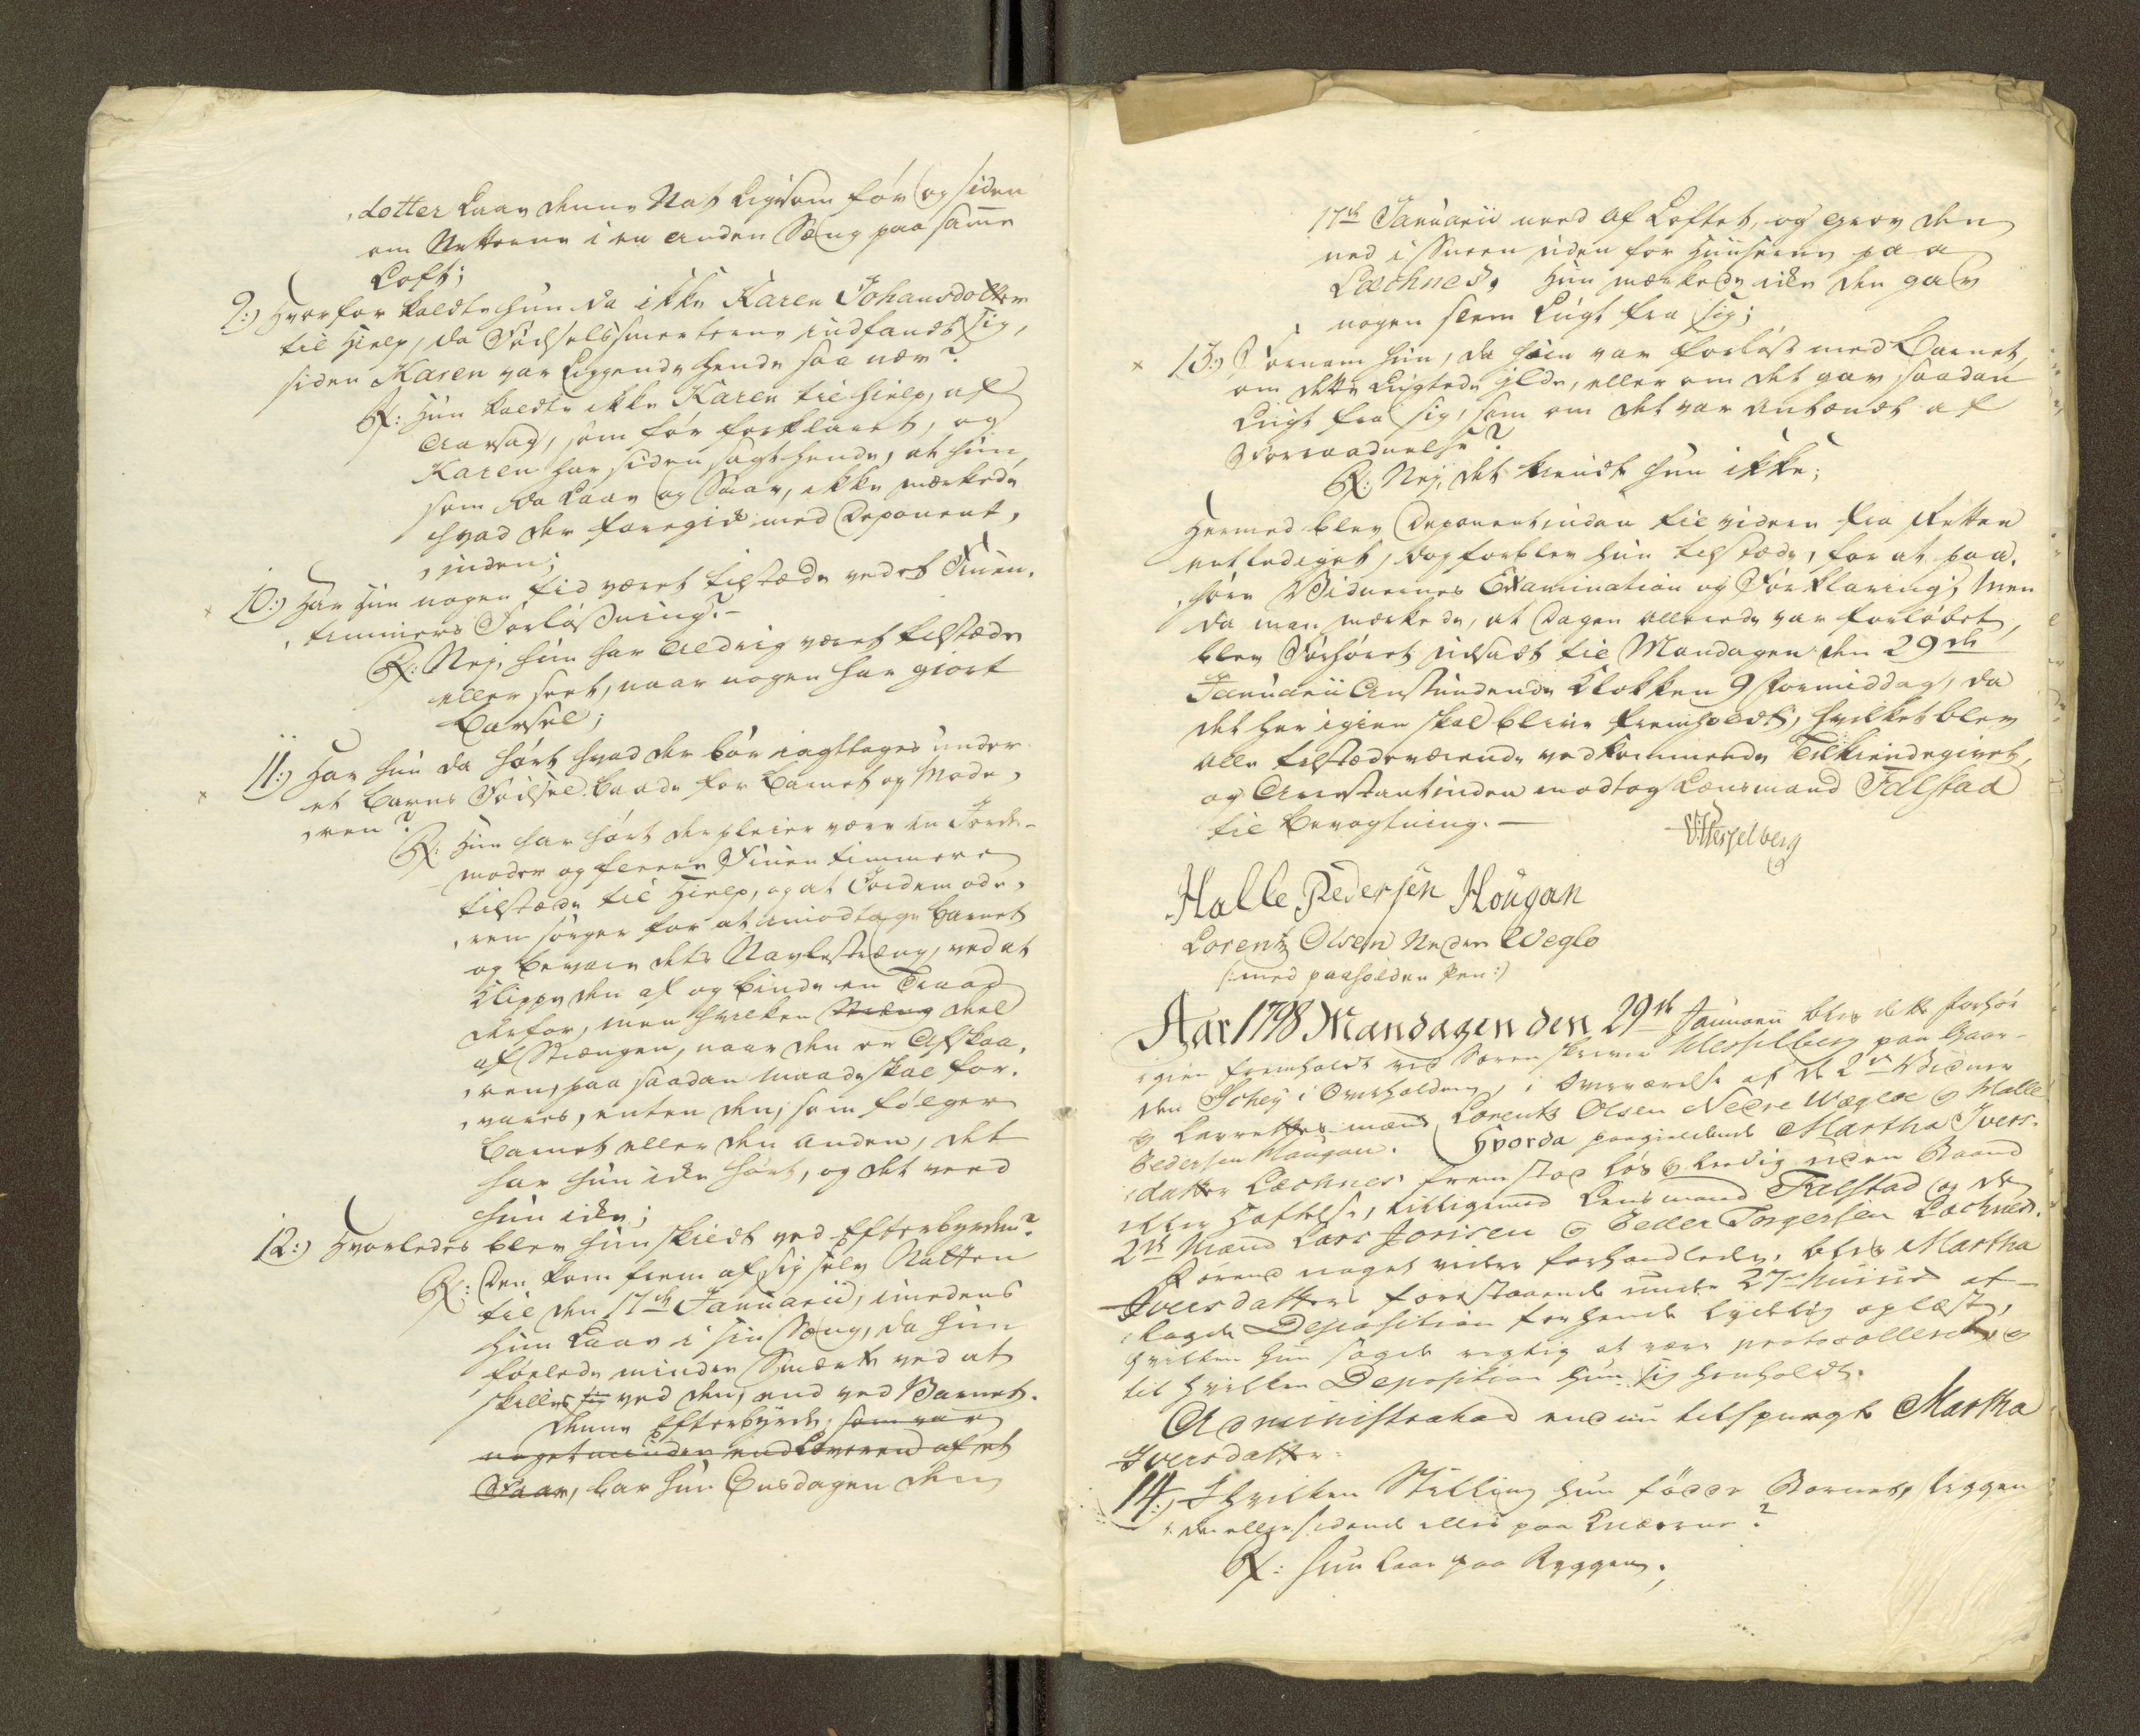 dotter Laae denne Nat ligesom før og siden
om Netterne i en anden Sæng paa samme
Loft;
9:) Hvorfor kaldte hun da ikke Karen Johansdotter
til Hielp, da Fødselssmerterne indfandt sig,
siden Karen var liggende hende saa nær?
R: Hun kaldte ikke Karen til Hielp, af
Aarsag, som før forklaret, og
Karen har siden sagt hende, at hun,
som da Laae og Saav, ikke mærkede
hvad der foregik med Deponent,
,inden;
10:) Har Hun nogen tid været tilstæde ved et Fruen,
,timmers Forløsning?-
R: Nej, hun har aldrig været tilstæde
eller seet, naar nogen har giort
Barsel;
11:) Har hun da hørt hvad der bør iagttages under
et Barns Fødsel baade for Barnet og Mode,
,ren?
R: Hun har hørt der pleier være en Jorde-
moder og fleere Fruentimmere
tilstæde til Hielp, og at Jordemode,
,ren sørger for at imodtage Barnet
og bevare dets Navlestræng, ved at
Klippe den af og binde en Traad
derfor, men hvilken Stræng Deel
af Strængen, naar den er Afskaa,
,ren, paa saadan Maade skal for,
,vares, enten den, som følger
Barnet eller den anden, det
har hun ikke hørt, og det veed
hun ikke;
12:) Hvorledes blev hun skildt ved Efterbyrden?
R: Den kom frem af sig selv Natten
til den 17de Januarii, imedens
hun Laae i sin Sæng, da hun
følede mindre Smerte ved at
skilles sig ved den, end ved Barnet.
Denne Efterbyrd, som var
noget mindre end Leveren af et
Faar, bar hun Onsdagen den
17de Januarii need af Loftet, og grov den
ned i Sneen uden for Huuserne paa
Læchnes. Hun mærkede ikke den gav
nogen slem Lugt fra sig;
13:) Fornam hun, da hun var forløst med Barnet,
om dette Lugtede ilde, eller om det gav saadan
Lugt fra sig, som om det var antændt af
Forraadnelse?
R: Nej, det kiendte hun ikke;
Hermed blev Deponentinden til videre fra Retten
entlediget, dog forblev hun tilstæde, for at paa,
,høre Vidnernes Examination og Forklaring; Men
da man mærkede, at Dagen allerede var forløbet,
blev Forhøret udsadt til Mandagen den 29de
Januarii Anstundende Klokken 9 Formiddag, da
det her igien skal blive fremholdt, hvilket blev
alle tilstædeværende vedkommende Tilkiendegivet,
og Arrestantinden modtog Lænsmand Falstad
til Bevogtning.-
Wesselberg
Halle Pedersen Hougan
Lorentz Olsen Nedre Weglo
(:med paaholden Pen:)
Aar 1798 Mandagen den 29de Januarii blev dette Forhør
igien fremholdt ved Sorenskriver Wesselberg paa Gaar-
den Schey i Overhalden, i Overværelse af de 2de Vidner
og Laurettes mænd Lorentz Olsen Nedre Wægloe og Halle
Pedersen Haugan. Hvorda paagieldende Martha Ivers-
datter Læchnes fremstod løs og ledig uden Baand
eller Hæftelse, tilligemed Lensmand Falstad og de
2de Mænd Lars Jorisen og Peder Torgersen Læchnes.
Førend noget videre forhandledes, blev Martha
Iversdatters forestaaende under 27de hujus af-
lagde Deposition for hende tydelig oplæst,
hvilken hun sagde rigtig at være protocolleret, og
til hvilken Deposition hun sig henholdt.
Administrator endnu tilspurgte Martha
Iversdatter:
14:) I hvilken Stilling hun fødde Barnet, liggen
,de eller sidende eller paa Knæerne?
R: Hun laae paa Ryggen.